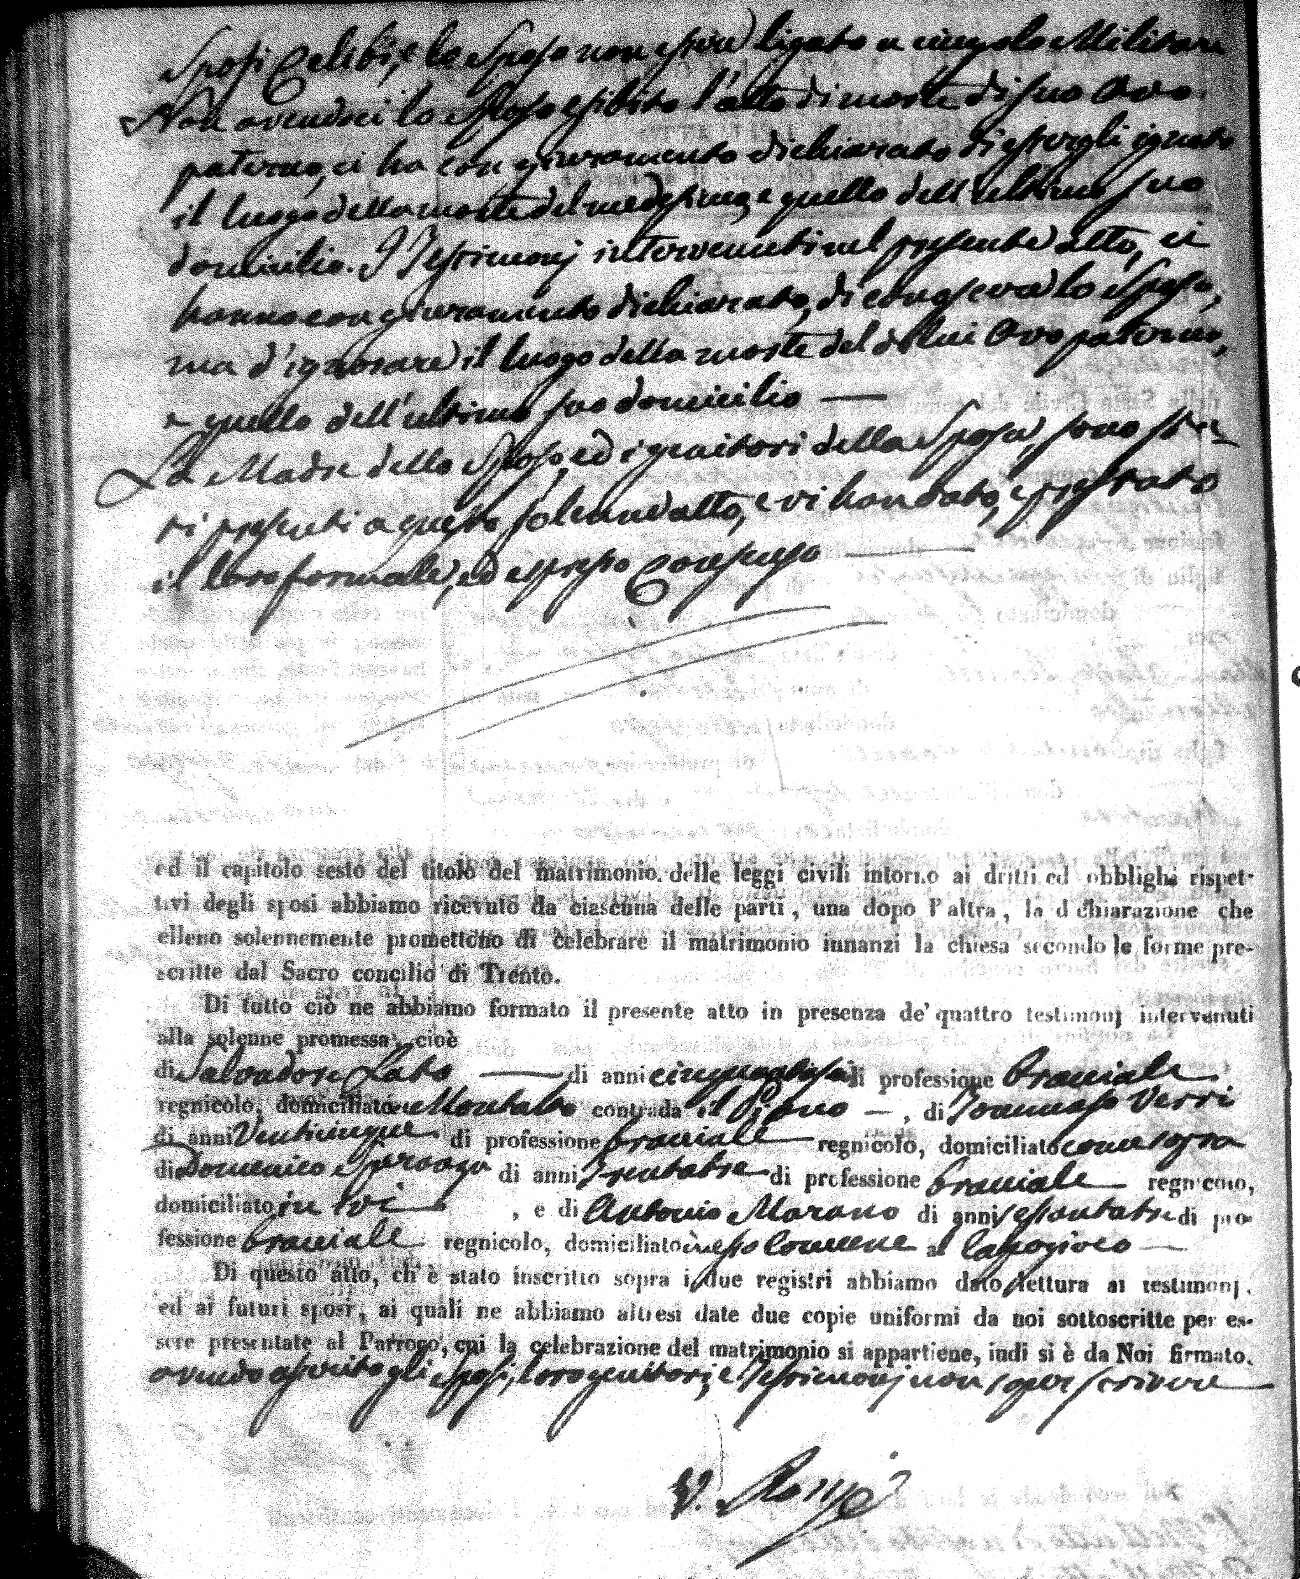 Sposi Celibi, e lo Sposo non essere ligato a cingolo Militare
Non avendoci lo Sposo esibito l'atto di morte di suo Avo
paterno, ci ha con giuramento dichiarato di essergli ignoto
il luogo della morte del medesimo, e quello dell'ultimo suo
domicilio. I Testimonj intervenuti nel presente atto, ci
hanno con giuramento dichiarato, di conoscere lo Sposo,
ma d'ignorare il luogo della morte del di lui Avo paterno,
e quello dell'ultimo suo domicilio —
La Madre dello Sposo, ed i genitori della Sposa, sono sta-
ti presenti a questo solenne atto, e vi han dato, e prestato
il loro formale, ed espresso Consenso —
ed il capitolo sesto del titolo del matrimonio delle leggi civili intorno ai dritti ed obblighi rispet-
tivi degli sposi abbiamo ricevuto da ciascuna delle parti, una dopo l'altra, la dichiarazione che
elleno solennemente promettono di celebrare il matrimonio innanzi la chiesa secondo le forme pre-
scritte dal Sacro concilio di Trento.
Di tutto ciò ne abbiamo formato il presente atto in presenza de' quattro testimonj intervenuti
alla solenne promessa, cioè
di Salvadore Lato — di anni cinquantasei di professione bracciale
regnicolo, domiciliato a Montalto contrada il Piano —, di Tommaso Verri
di anni Venticinque di professione bracciale regnicolo, domiciliato come sopra
di Domenico Speranza di anni Trentatre di professione bracciale regnicolo,
domiciliato in ivi , e di Antonio Morano di anni sessantatre di pro-
fessione bracciale regnicolo, domiciliato in esso Comune al Capogioco —
Di questo atto, ch'è stato inscritto sopra i due registri abbiamo dato lettura ai testimonj,
ed ai futuri sposi, ai quali ne abbiamo altresì date due copie uniformi da noi sottoscritte per es-
sere presentate al Parroco, cui la celebrazione del matrimonio si appartiene, indi si è da Noi firmato.
avendo asserito gli Sposi, loro genitori, e Testimonj non saper scrivere